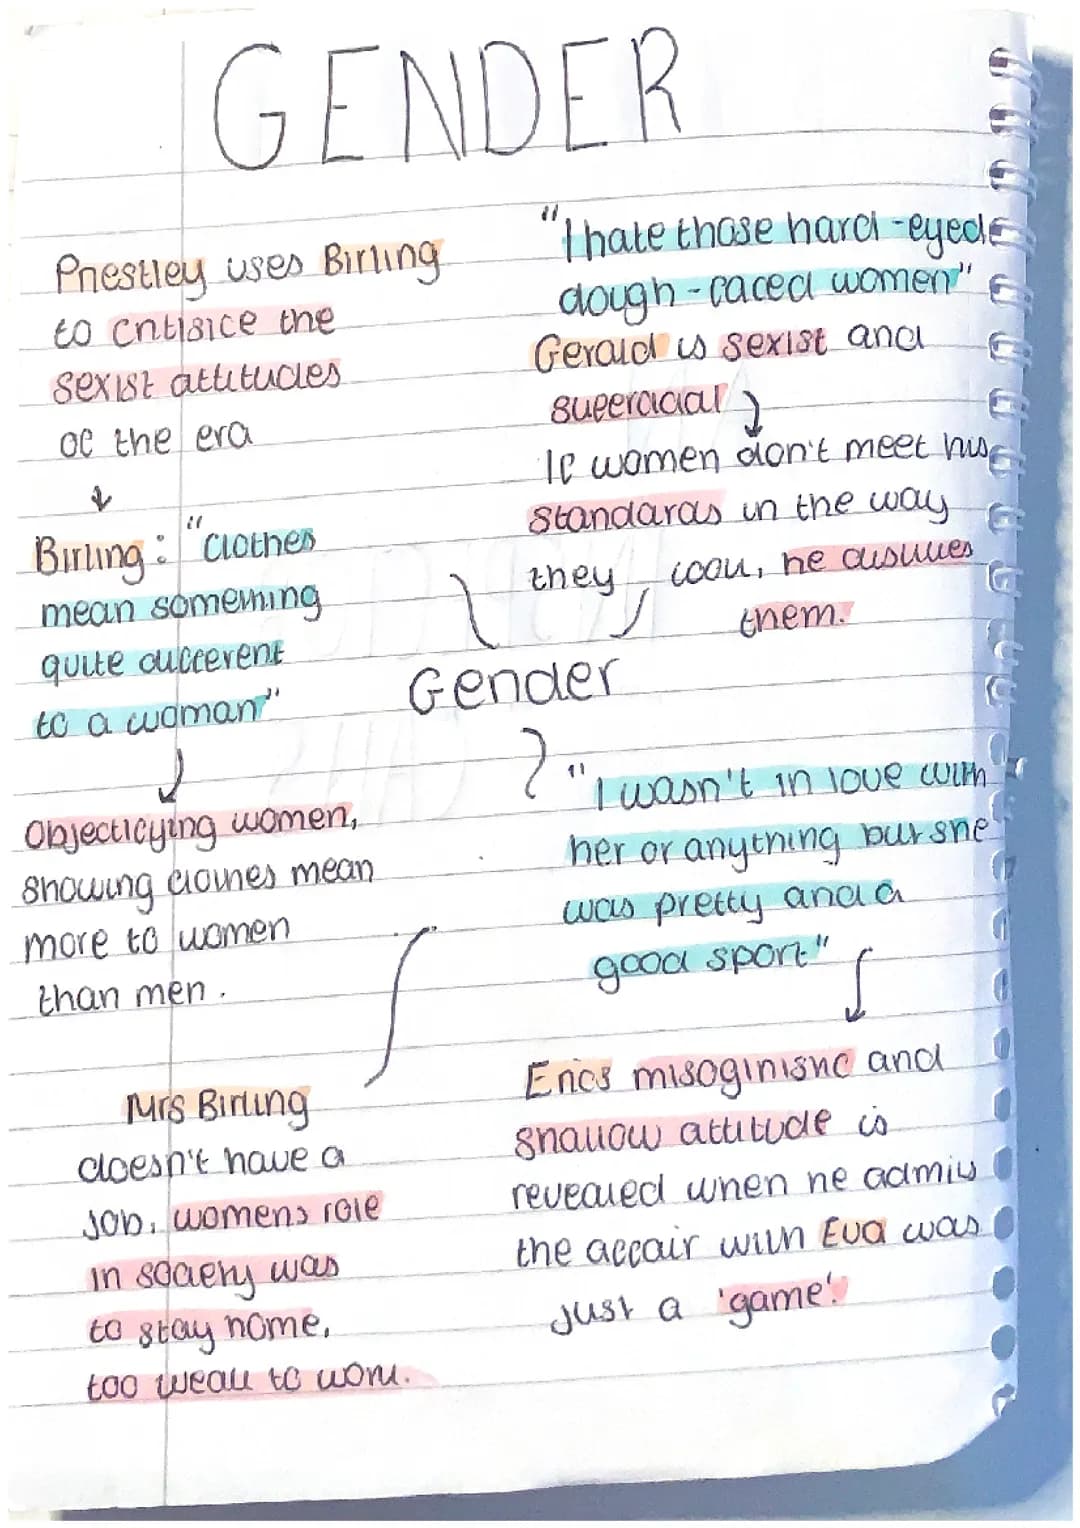 GENDER
Priestley uses Birling
to critisice the
sexist attitudes
of the era
Birling: "Clothes
mean something
quite different
to a woman"
Objectifying women,
showing clothes mean
more to women
than men.
Mrs Birling
doesn't have a
job, womens role
in society was
to stay home,
too weak to work.
Gender
"I hate those hard-eyed
dough-faced women"
Gerald is sexist and
superficial
If women don't meet his
standards in the way
they look, he dislikes
them.
"I wasn't in love with
her or anything but she
was pretty and a
good sport"
Erics misoginistic and
shallow attitude is
revealed when he admits
the affair with Eva was
just a 'game'.